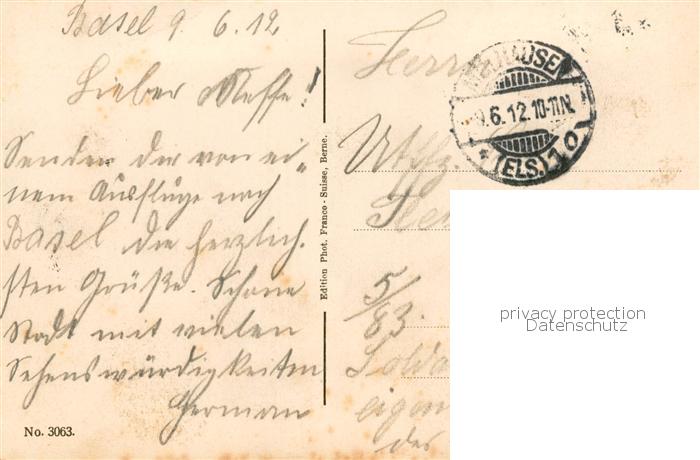 Basel 9.6.12.
Lieber Neffe!
Sende dir von ei-
nem Ausfluge nach
Basel die herzlich-
sten Grüße. Schöne
Stadt mit vielen
Sehenswürdigkeiten
Herman
No. 3063.
Edition Phot. Franco-Suisse, Berne.
Herrn
MÜLHAUSEN
9.6.12.10-11.N.
*(ELS.)1 o
Utffz.
5/83.
Solda
eigen
des
privacy protection
Datenschutz